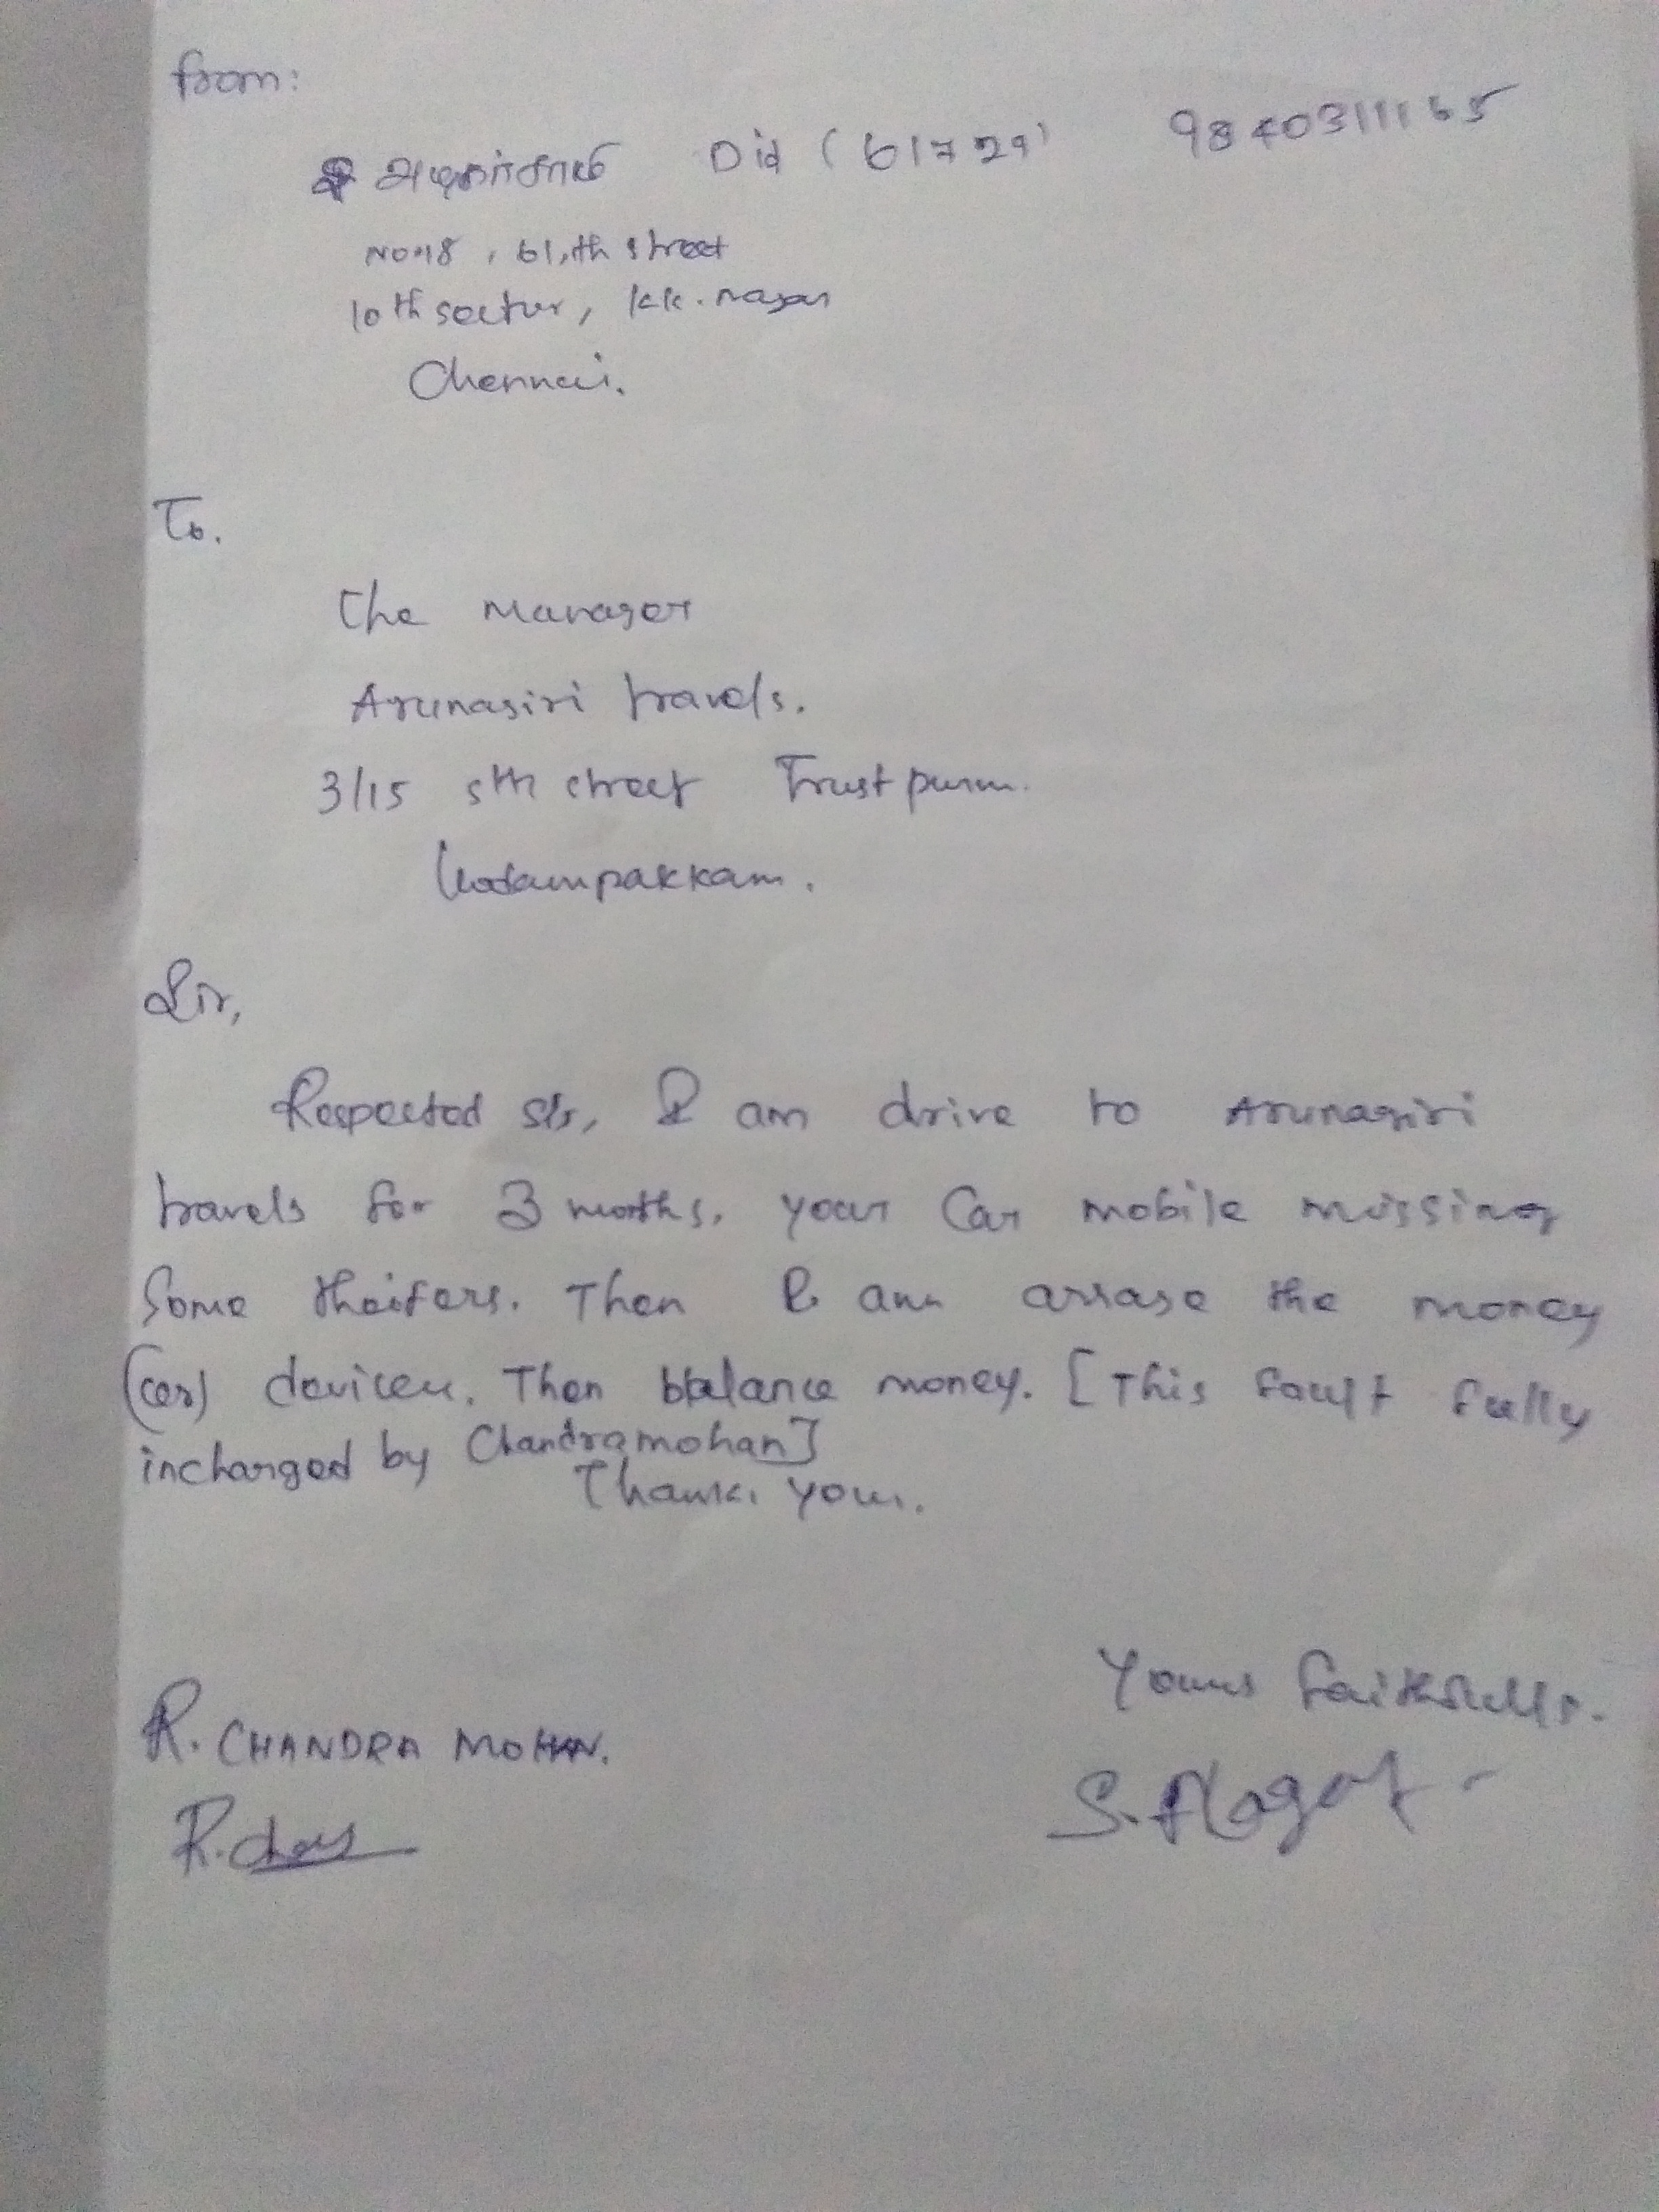 from:
Did (61729) 9840311165
No:18, 61,th street
10th sector, kk. nagar
Chennai.
To.
The Manager
Arunagiri travels.
3/15 5th street Trustpurm.
Kodampakkam.
Sir,
Respected sir, I am drive to Arunagiri
travels for 3 months. your Car mobile missing
Some theifers. Then I am arrage the money
(or) devicen. Then balance money. [This fault fully
incharged by Chandramohan]
Thank. you.
Yours faithfully.
R. CHANDRA MOHAN.